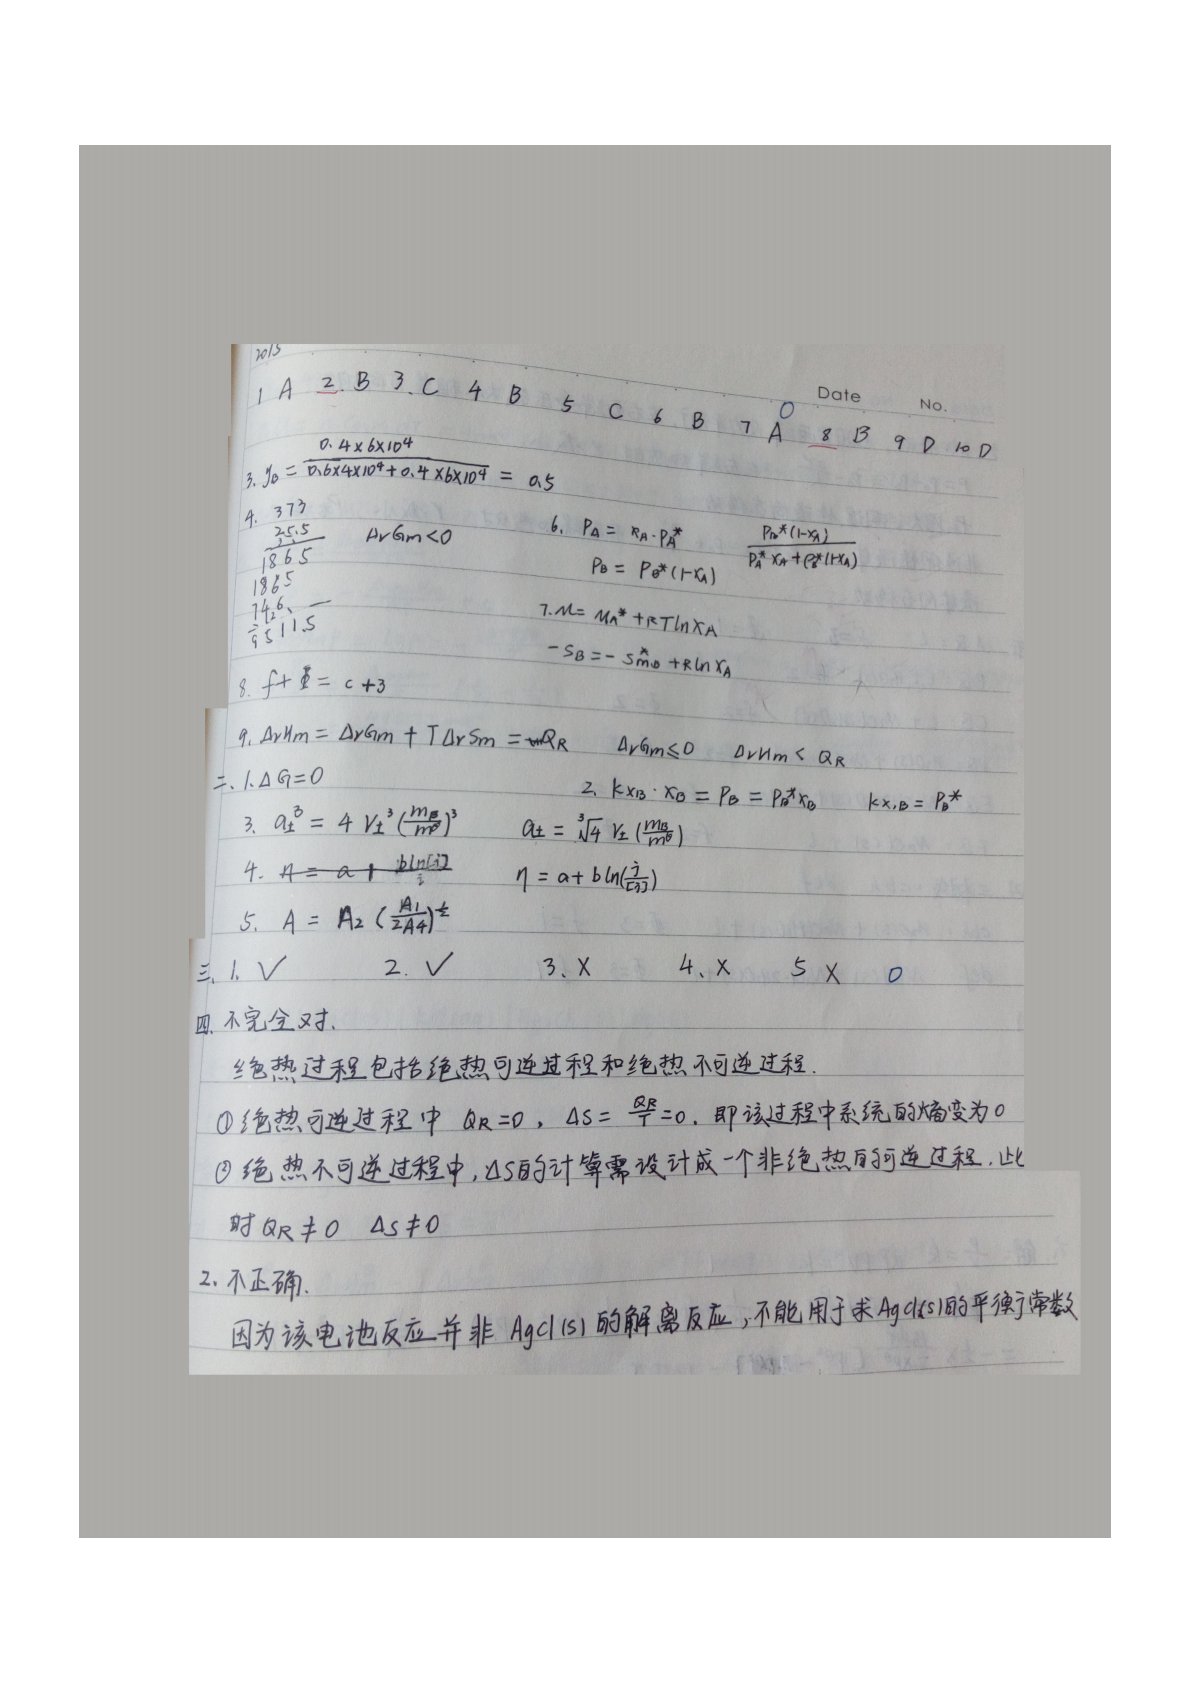 2015
Date No.
1 A 2. B 3. C 4 B 5 C 6 B 7 A 8 B 9 D 10 D
3. yB = 0.4×6×10⁴ / (0.6×4×10⁴+0.4×6×10⁴) = 0.5
4. 373
25.5
1865
1865
746
9511.5
ΔrGm<0
6. PA = xA·PA*
PB = PB*(1-xA)
PB*(1-xA) / (PA* xA + PB*(1-xA))
7. μ = μA* + RTlnxA
-SB = -S*m,B + RlnxA
8. f+Φ = c+3
9. ΔrHm = ΔrGm + TΔrSm = QR ΔrGm≤0 ΔrHm < QR
二、1. ΔG=0
2. kxB·xB = PB = PB*xB kx,B = PB*
3. a±³ = 4 γ±³ (mB/m⊖)³ a± = ³√4 γ± (mB/m⊖)
4. η = a + bln[j] / i η = a + bln(j/[j])
5. A = A2 (A1/2A4)^½
三、1. √ 2. √ 3. × 4. × 5 × 0
四. 不完全对.
绝热过程包括绝热可逆过程和绝热不可逆过程.
①绝热可逆过程中 QR=0, ΔS = QR/T = 0. 即该过程中系统的熵变为0
②绝热不可逆过程中,ΔS的计算需设计成一个非绝热的可逆过程.此
时QR≠0 ΔS≠0
2. 不正确.
因为该电池反应并非 AgCl(s) 的解离反应,不能用于求AgCl(s)的平衡常数